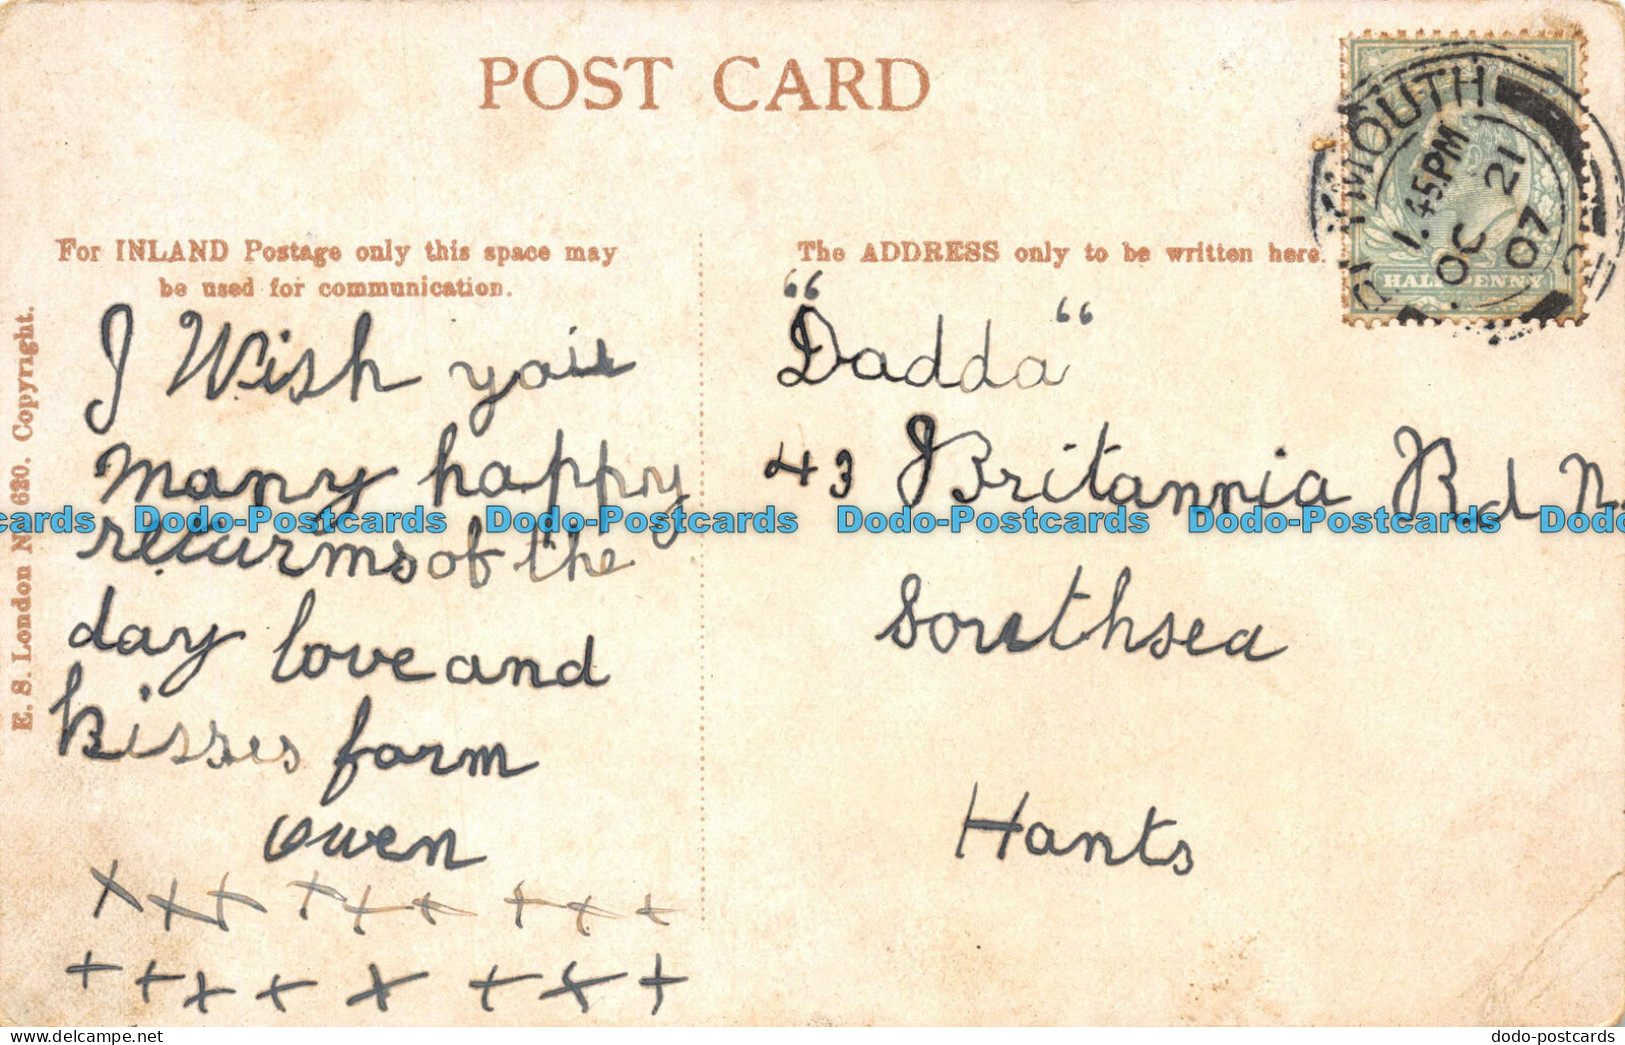 POST CARD
For INLAND Postage only this space may
be used for communication.
The ADDRESS only to be written here.
E. S. London No 620. Copyright.
I Wish you
many happy
returms of the
day love and
kisses form
owen
x x x x x x x x x
x x x x x x x x
"Dadda"
43 Britannia Rd N.
Southsea
Hants
1.45PM
OC 21
07
HALF PENNY
Dodo-Postcards Dodo-Postcards Dodo-Postcards Dodo-Postcards
dodo-postcards